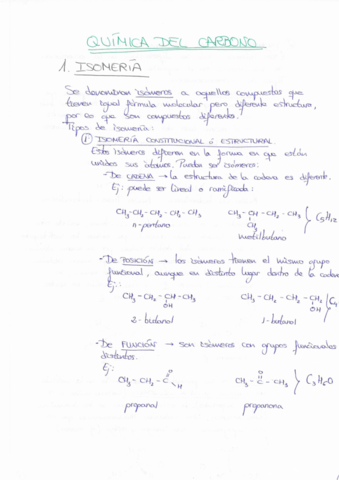 QUÍMICA DEL CARBONO
1. ISOMERÍA
Se denominan isómeros a aquellos compuestos que
tienen igual fórmula molecular pero diferente estructura,
por eso que son compuestos diferentes.
Tipos de isomería:
① ISOMERÍA CONSTITUCIONAL ó ESTRUCTURAL
Estos isómeros difieren en la forma en que están
unidos sus átomos. Pueden ser isómeros:
- De CADENA → la estructura de la cadena es diferente.
Ej: puede ser lineal o ramificada:
CH₃-CH₂-CH₂-CH₂-CH₃ CH₃-CH-CH₂-CH₃ } C₅H₁₂
CH₃
n-pentano metilbutano
- De POSICIÓN → los isómeros tienen el mismo grupo
funcional, aunque en distinto lugar dentro de la cadena
Ej.:
CH₃-CH₂-CH-CH₃ CH₃-CH₂-CH₂-CH₂ } C₄
OH OH
2-butanol 1-butanol
- De FUNCIÓN → son isómeros con grupos funcionales
distintos.
Ej:
O O
CH₃-CH₂-C CH₃-C-CH₃ } C₃H₆O
H
propanal propanona